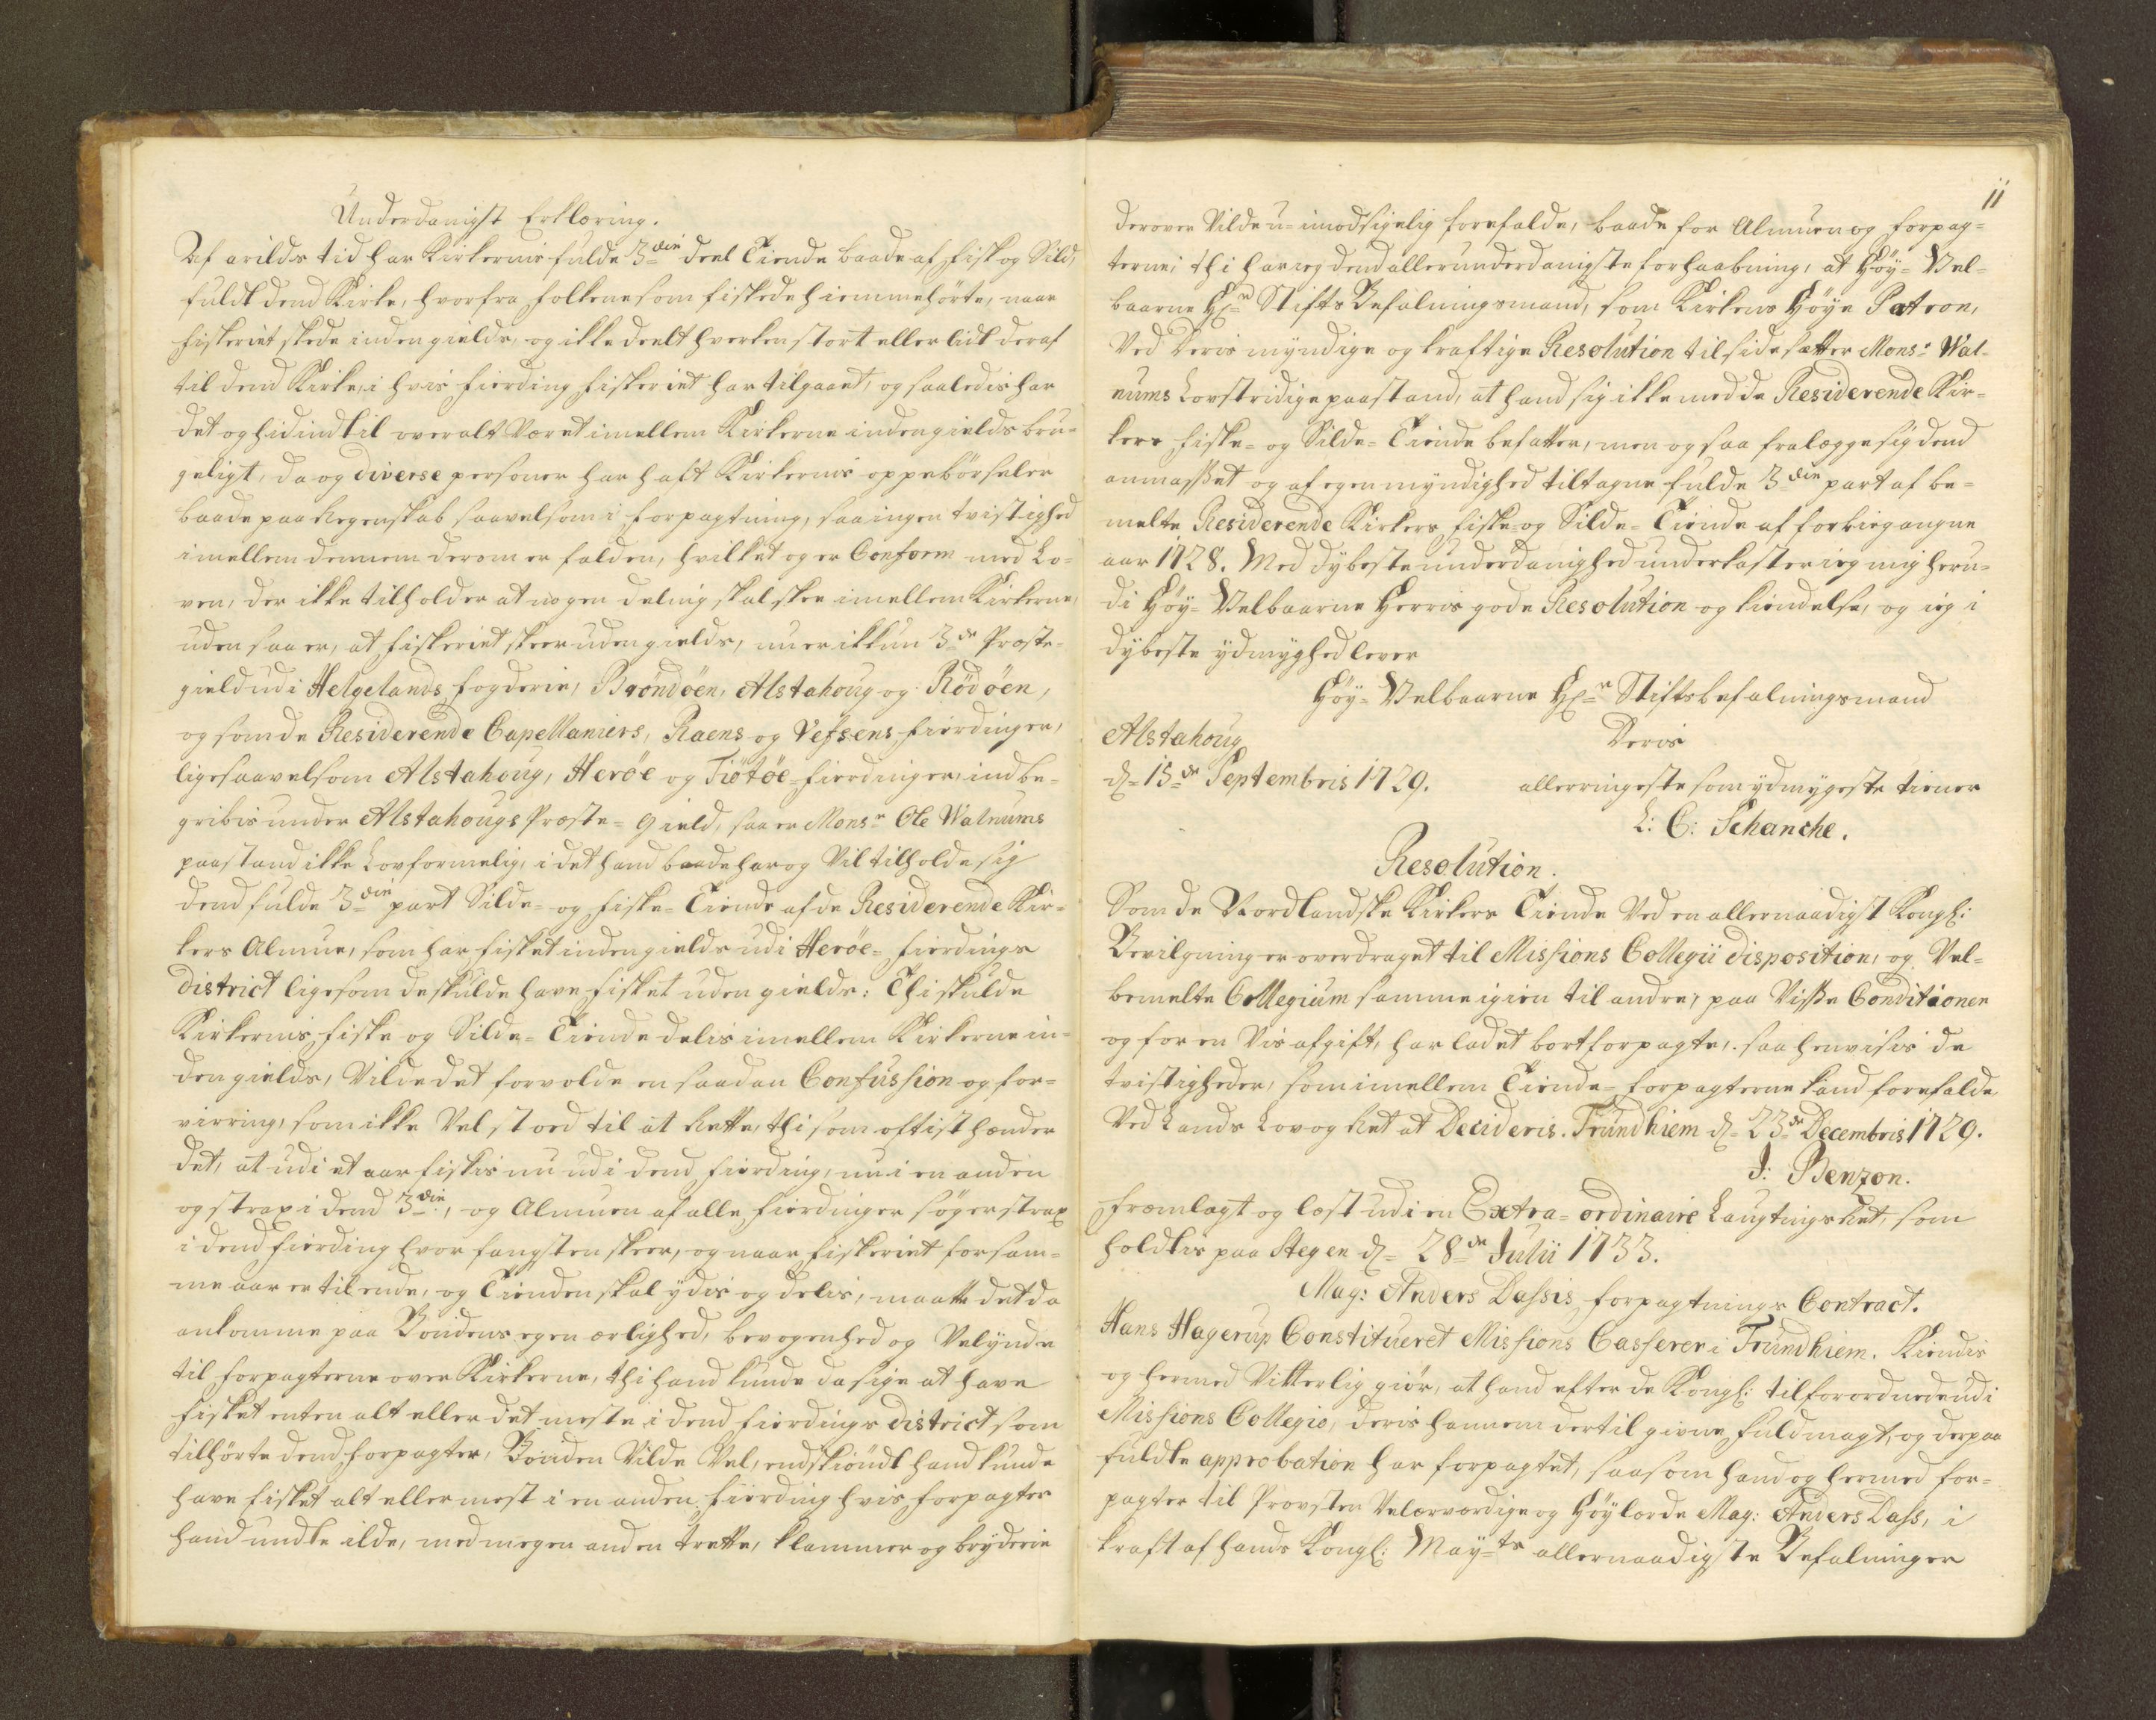 Underdanigst Erklæring.
Af arilds tid har Kirkernis fulde 3die deel Tiende baade af Fisk og Sild,
fuldt dend Kirke, hvorfra Folkene som fiskede hiemmehörte, naar
fiskeriet skede inden gields, og ikke deelt hverken stort eller lidt deraf
til dend Kirke, i hvis Fierding Fiskeriet har tilgaaet, og saaledis har
det og hidindtil overalt Været imellem Kirkerne inden gields bru-
geligt, da og diverse personer har haft Kirkernis oppebörseler
baade paa Regenskab saavelsom i forpagtning, saa ingen tvistighed
imellem dennem derom er falden, hvilket og er Conform med Lo-
ven, der ikke tilholder at nogen deling skal skee imellem Kirkerne,
uden saa er, at fiskeriet skeer uden gields, nu er ikkun 3de Præste-
gield udi Helgelands Fogderie, Bröndöen, Alstahoug og Rödöen,
og som de Residerende Capellaniers, Raens og Vefsens Fierdinger,
ligesaavelsom Alstahoug, Heröe og Tiötöe-Fierdinger, indbe-
gribis under Alstahougs Præste-Gield, saa er Monsr Ole Walnums
paastand ikke Lovformelig, i det hand baade har og Vil tilholde sig
dend fulde 3die part Silde- og Fiske-Tiende af de Residerende Kir-
kers Almue, som har fisket inden gields udi Heröe-Fierdings
District ligesom de skulde have fisket uden gields: Thi skulde
Kirkernis Fiske og Silde-Tiende delis imellem Kirkerne in-
den gields, Vilde det forvolde en saadan Confussion og for-
virring, som ikke Vel stoed til at Rette, thi som oftist hænder
det, at udi et aar fiskis nu udi dend Fierding, nu i en anden
og strax i dend 3die, og Almuen af alle Fierdinger söger strax
i dend Fierding hvor fangsten skeer, og naar Fiskeriet for sam-
me aar er til ende, og Tienden skal ydis og delis, maatte det da
ankomme paa Bondens egen ærlighed, bevogenhed og Velynde
til Forpagterne over Kirkerne, thi hand kunde da sige at have
fisket enten alt eller det meste i dend Fierdings District som
tilhörte dend Forpagter, Bonden Vilde Vel, endskiöndt hand kunde
have fisket alt eller mest i en anden Fierding hvis Forpagter
hand undte ilde, med megen anden trette, klammer og bryderie
11
derover Vilde u-imodsigelig forefalde, baade for Almuen og Forpag-
terne; thi har ieg dend allerunderdanigste forhaabning, at Höy-Vel-
baarne Hr Stifts Befalningsmand, som Kirkens Höye Patron,
Ved Deris myndige og kraftige Resolution tilside sætter Monsr Wal-
nums Lovstridige paastand, at hand sig ikke med de Residerende Kir-
kers Fiske- og Silde-Tiende befatter, men og saa fralægge sig dend
anmasset og af egen myndighed tiltagne fulde 3die part af be-
melte Residerende Kirkers Fiske- og Silde-Tiende af forbigangne
aar 1728. Med dybeste underdanighed underkaster ieg mig heru-
di Höy-Velbaarne Herris gode Resolution og kiendelse, og ieg i
dybeste ydmyghed lever
Höy-Velbaarne Hr Stiftsbefalningsmand
Alstahoug Deris
d. 15de Septembris 1729. allerringeste som ydmygeste tiener
L: C: Schanche.
Resolution.
Som de Nordlandske Kirkers Tiende Ved en allernaadigst Kongl:
Bevilgning er overdraget til Missions Collegii disposition, og Vel-
bemelte Collegium samme igien til andre, paa Visse Conditioner
og for en Vis afgift, har ladet bortforpagte, saa henvisis de
tvistigheder, som imellem Tiende-Forpagterne kand forefalde,
Ved Lands Lov og Ret at Decideris. Trundhiem d. 23de Decembris 1729.
J: Benzon.
Fremlagt og læst udi en Extra-ordinaire Laugtings Ret, som
holdtis paa Stegen d. 28de Julii 1733.
Mag: Anders Dassis Forpagtnings Contract.
Hans Hagerup Constitueret Missions Casserer i Trundhiem. Kiendis
og hermed Vitterlig giör, at hand efter de Kongl: tilforordnede udi
Missions Collegio, deris hannem dertil givne Fuldmagt, og derpaa
fuldte approbation har forpagtet, saasom hand og hermed for-
pagter til Provsten Velærværdige og Höylærde Mag: Anders Dass, i
kraft af hands Kongl: Mayts allernaadigste Befalninger